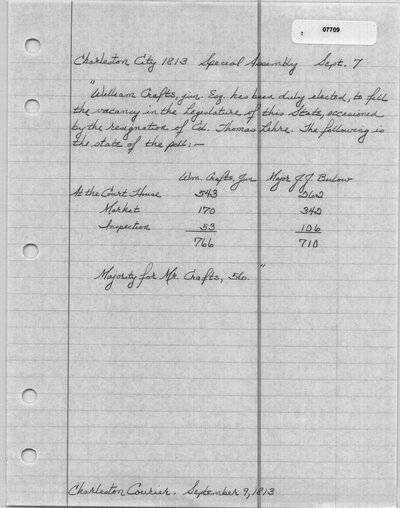 07709
Charleston City 1813 Special Assembly Sept. 7
"William Crafts, jun. Esq. has been duly elected, to fill
the vacancy in the Legislature of this State, occasioned
by the resignation of Col. Thomas Lehre. The following is
the state of the poll:—
Wm. Crafts, Jun Major J.J. Bulow
At the Court House 543 262
Market 170 342
Inspection 53 106
766 710
Majority for Mr. Crafts, 56."
Charleston Courier. September 9, 1813